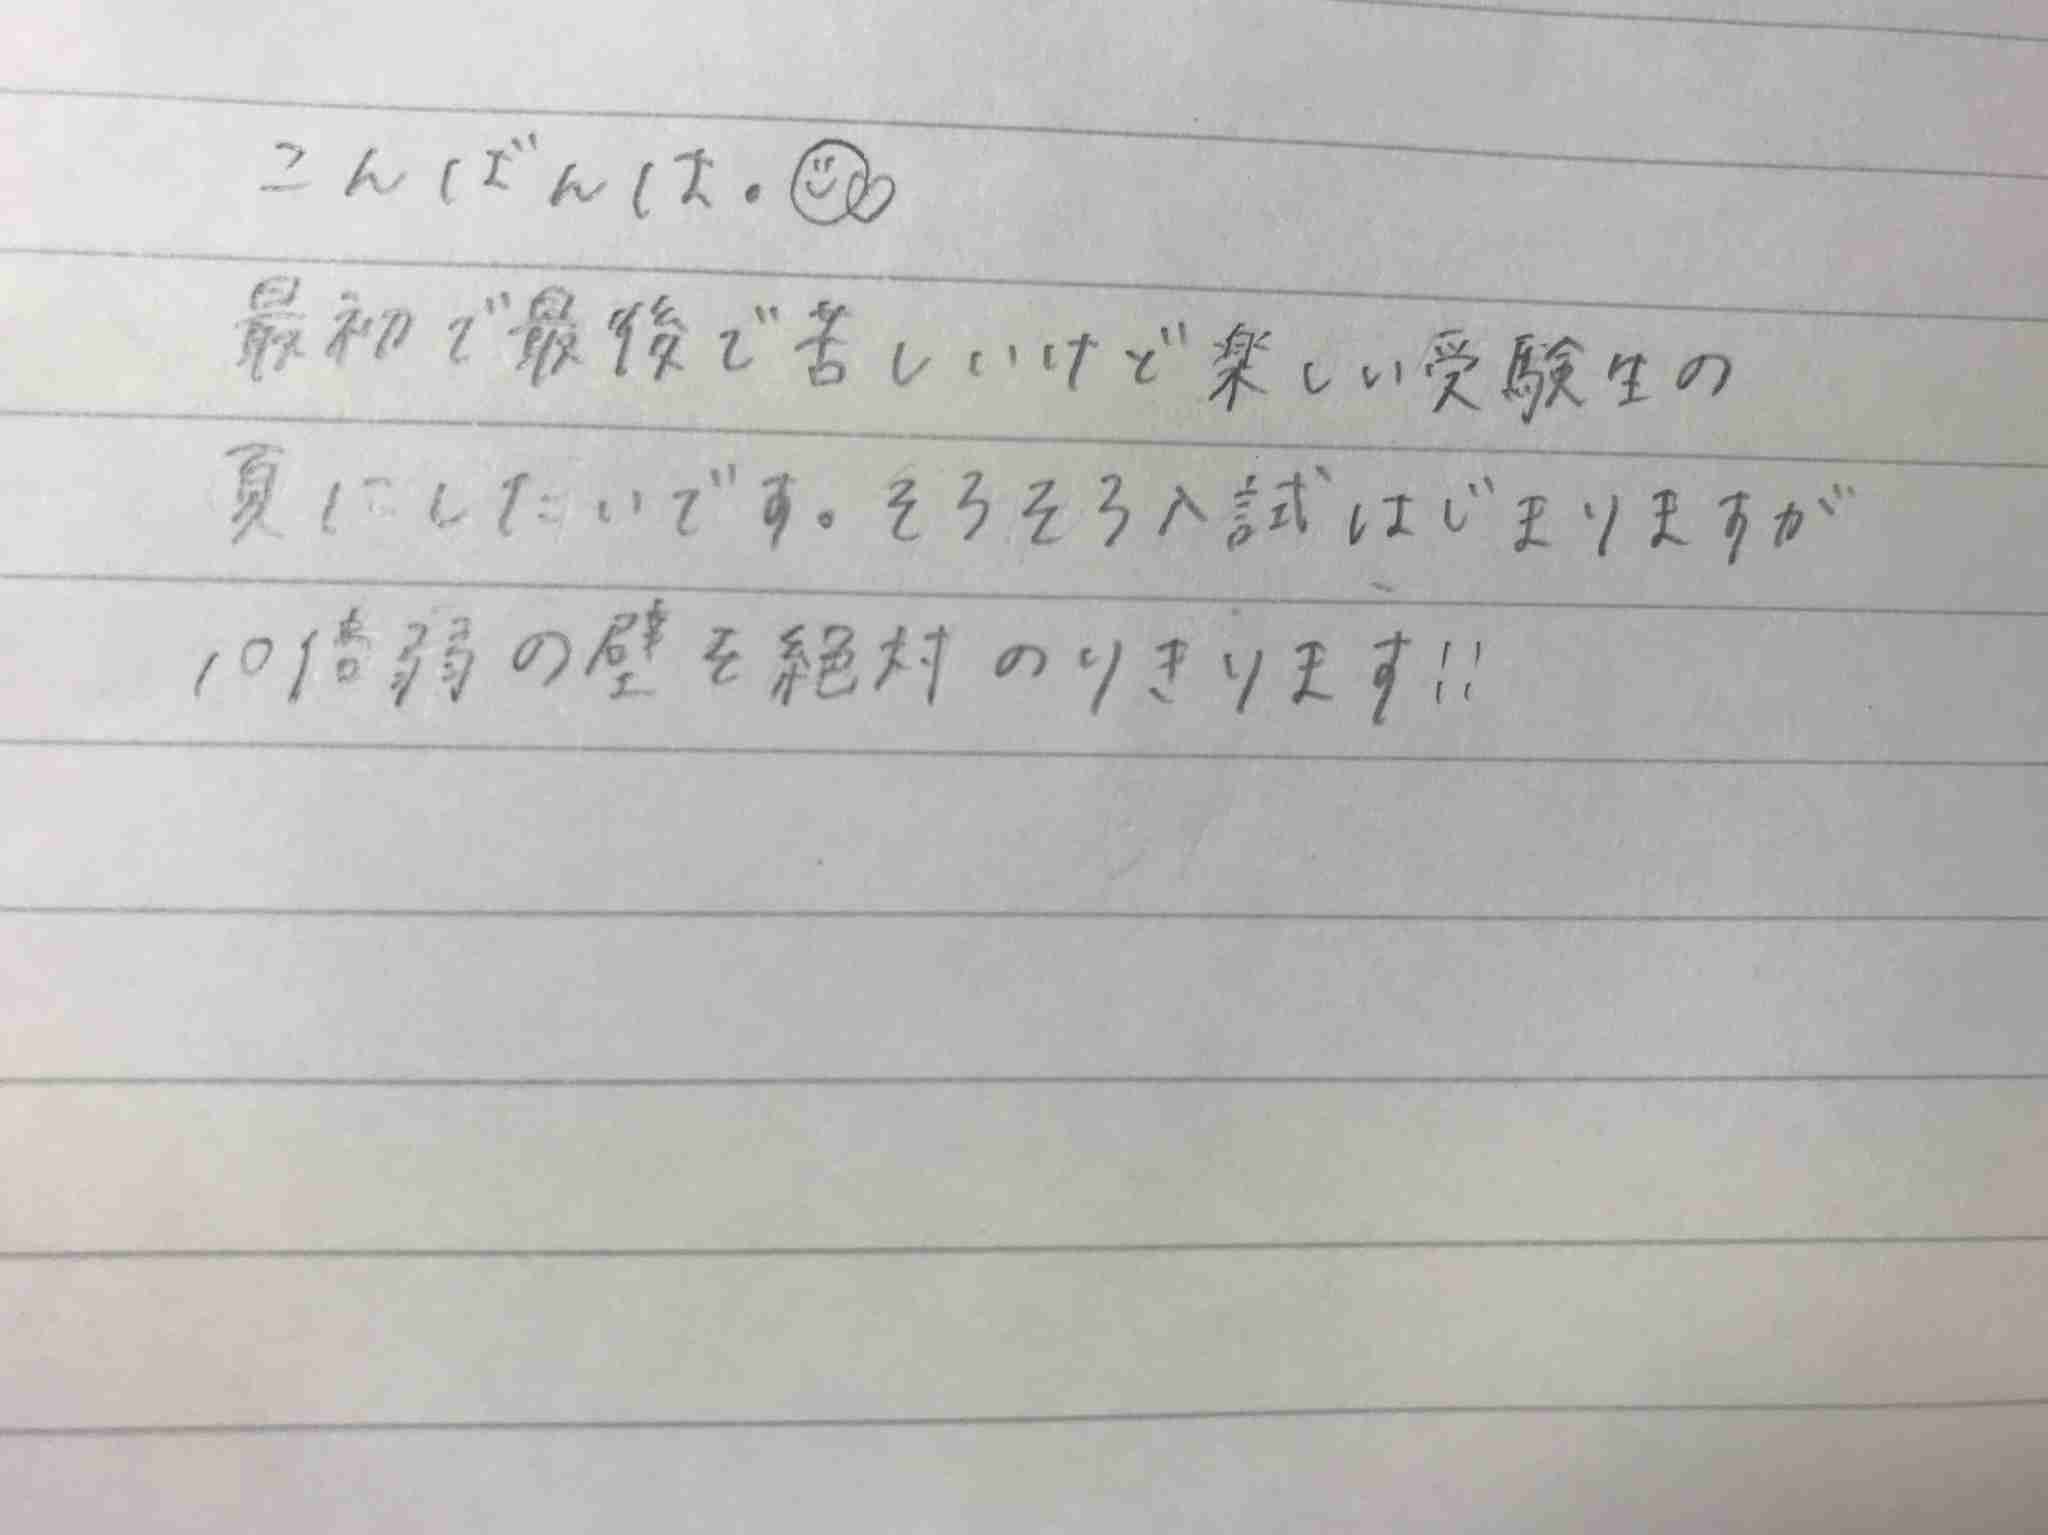 こんばんは。
最初で最後で苦しいけど楽しい受験生の
夏にしたいです。そろそろ入試はじまりますが
10倍弱の壁を絶対のりきります!!